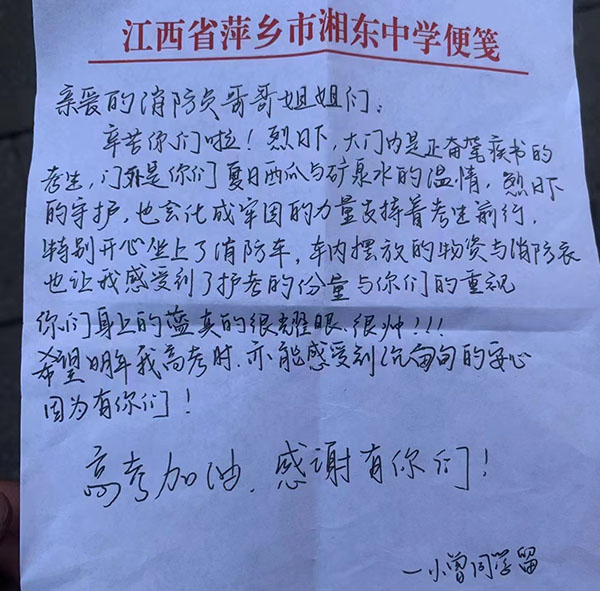 江西省萍乡市湘东中学便笺
亲爱的消防员哥哥姐姐们：
辛苦你们啦！烈日下，大门内是正奋笔疾书的
考生，门外是你们夏日西瓜与矿泉水的温情，烈日下
的守护，也会化成牢固的力量支持着考生前行，
特别开心坐上了消防车，车内摆放的物资与消防衣
也让我感受到了护考的份量与你们的重视
你们身上的蓝真的很耀眼、很帅！！！
希望明年我高考时，亦能感受到沉甸甸的安心
因为有你们！
高考加油、感谢有你们！
—小曾同学留